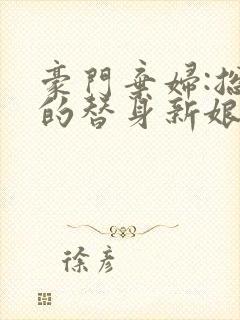 豪門棄婦:總
的替身新娘
徐彥